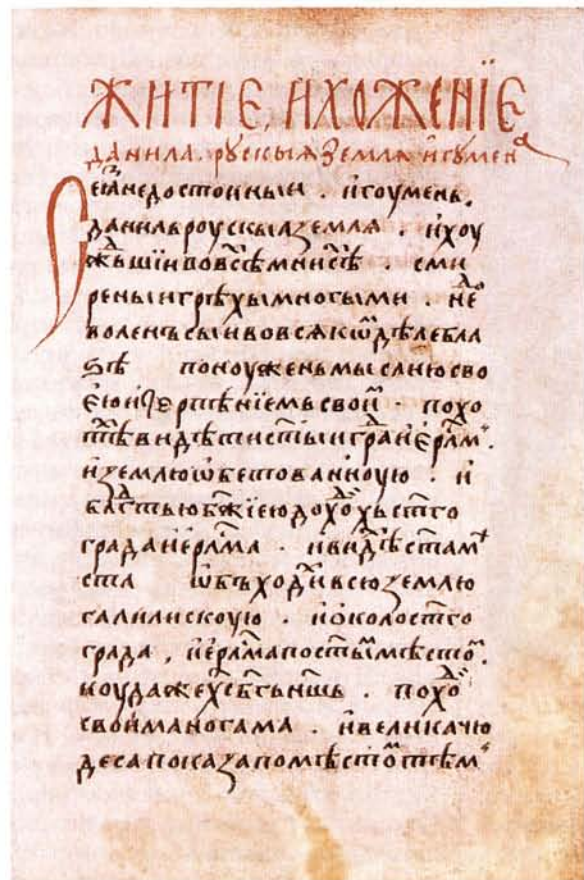 ЖИТІЄ, ИХОЖЕНЇЄ
данила. рускыѧ земля игумена
Се꙼ꙗ҆недостоиныи . игоумень.
данильроускыѧземля . ихоу
жⷣьшїивовсѣⷯмнисѣⷯ . сми
реныигрѣхымногыми . неⷣо
воленъсыивовсѧкѡⷨдѣлебла
ѕѣ поноуженьмыслїюсво
єюинетерпѣнїемьсвоиⷨ . похо
тѣⷯвидѣтистⷭ҇ыиграⷣиєрⷭ҇лⷨм .
иземлюѡбетованноую . и
блгⷣтьюбж҃їеюдохоⷣхьст҃го
градаиєрⷭ҇лма . ивидѣⷯст҃аⷨ
ста ѡбъходиⷯвсюземлю
галилискоую . иоколост҃го
града , иєрⷭ҇лмапост҃ыⷨмѣстоⷨ.
коудажех҃сб҃гьнш҃ь . похоⷣ
своиманогама . ивеликачю
десапоказапомѣстоⷨтѣм